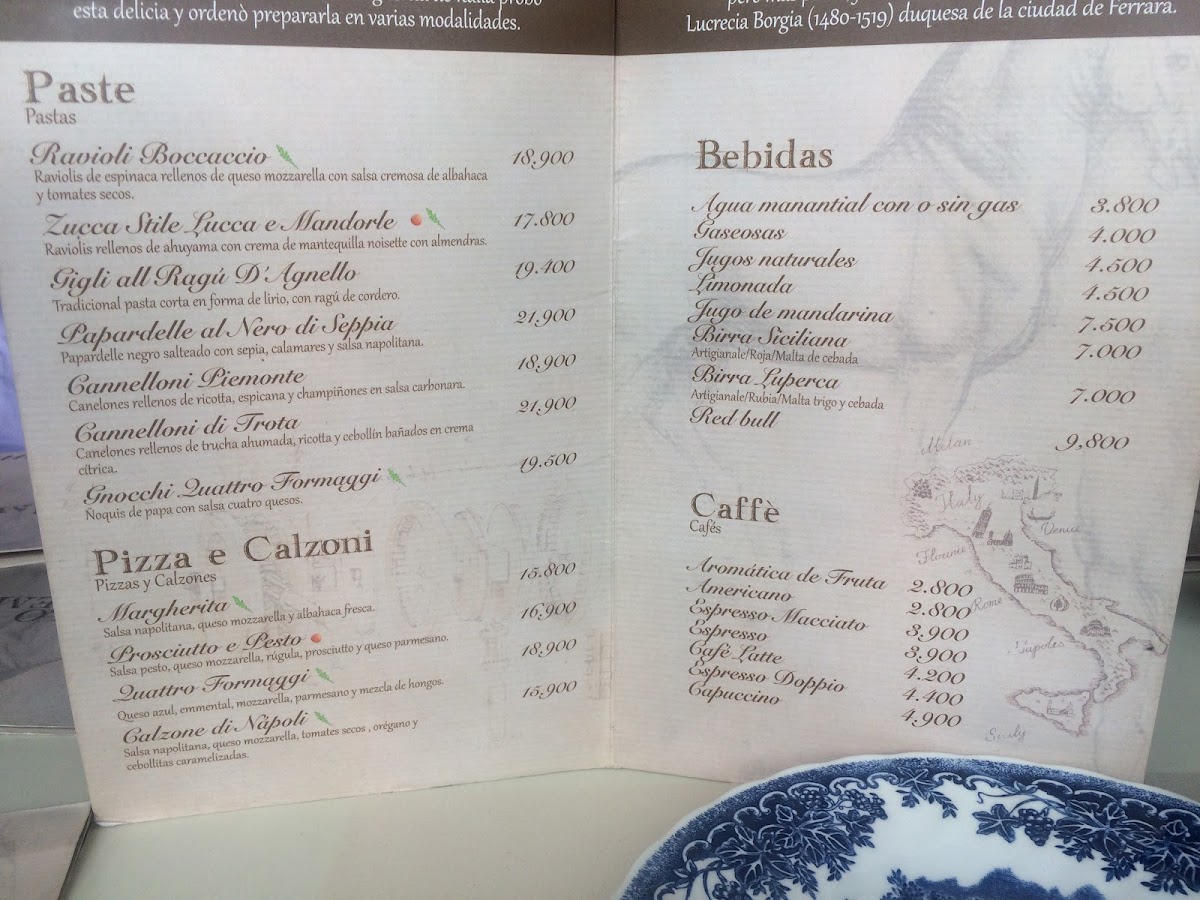 esta delicia y ordenò prepararla en varias modalidades.
Paste
Pastas
Ravioli Boccaccio 18,900
Raviolis de espinaca rellenos de queso mozzarella con salsa cremosa de albahaca
y tomates secos.
Zucca Stile Lucca e Mandorle 17.800
Raviolis rellenos de ahuyama con crema de mantequilla noisette con almendras.
Gigli all Ragú D'Agnello 19.400
Tradicional pasta corta en forma de lirio, con ragú de cordero.
Papardelle al Nero di Seppia 21,900
Papardelle negro salteado con sepia, calamares y salsa napolitana.
Cannelloni Piemonte 18,900
Canelones rellenos de ricotta, espicana y champiñones en salsa carbonara.
Cannelloni di Trota 21,900
Canelones rellenos de trucha ahumada, ricotta y cebollín bañados en crema
cítrica.
Gnocchi Quattro Formaggi 19.500
Ñoquis de papa con salsa cuatro quesos.
Pizza e Calzoni
Pizzas y Calzones
Margherita 15.800
Salsa napolitana, queso mozzarella y albahaca fresca.
Prosciutto e Pesto 16,900
Salsa pesto, queso mozzarella, rúgula, prosciutto y queso parmesano.
Quattro Formaggi 18,900
Queso azul, emmental, mozzarella, parmesano y mezcla de hongos.
Calzone di Nàpoli 15,900
Salsa napolitana, queso mozzarella, tomates secos , orégano y
cebollitas caramelizadas.
Lucrecia Borgia (1480-1519) duquesa de la ciudad de Ferrara.
Bebidas
Agua manantial con o sin gas 3.800
Gaseosas 4.000
Jugos naturales 4.500
Limonada 4.500
Jugo de mandarina 7.500
Birra Siciliana 7.000
Artigianale/Roja/Malta de cebada
Birra Luperca 7.000
Artigianale/Rubia/Malta trigo y cebada
Red bull 9,800
Caffè
Cafés
Aromática de Fruta 2.800
Americano 2.800
Espresso Macciato 3,900
Espresso 3,900
Cafè Latte 4.200
Espresso Doppio 4.400
Capuccino 4,900
Milan
Italy
Venice
Rome
Napoles
Sicily